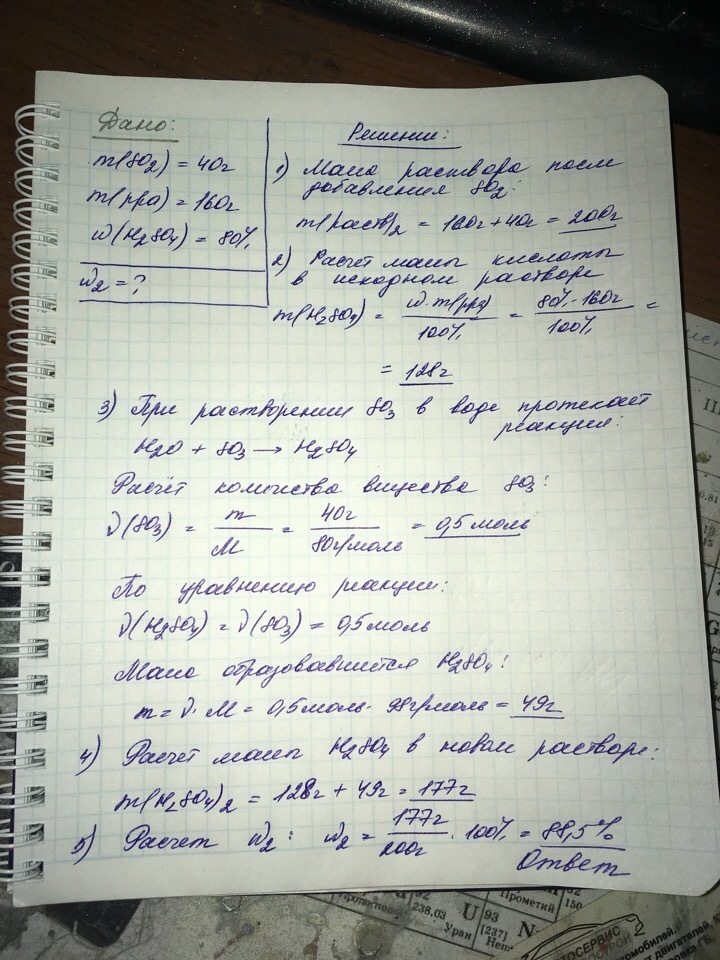 Дано:
m(SO2) = 40г
m(рра) = 160г
w(H2SO4) = 80%
w2 = ?
Решение:
1) Масса раствора после
добавления SO2:
m(раств)2 = 160г + 40г = 200г
2) Расчет массы кислоты
в исходном растворе
m(H2SO4) = w·m(рра) / 100% = 80%·160г / 100% =
= 128г
3) При растворении SO3 в воде протекает
реакция:
H2O + SO3 → H2SO4
Расчёт количества вещества SO3:
ν(SO3) = m / M = 40г / 80г/моль = 0,5 моль
По уравнению реакции:
ν(H2SO4) = ν(SO3) = 0,5 моль
Масса образовавшейся H2SO4:
m = ν·M = 0,5 моль · 98г/моль = 49г
4) Расчет массы H2SO4 в новом растворе:
m(H2SO4)2 = 128г + 49г = 177г
5) Расчет w2: w2 = 177г / 200г · 100% = 88,5%
Ответ
U 93
238,03 [237]
Уран
Прометий
150